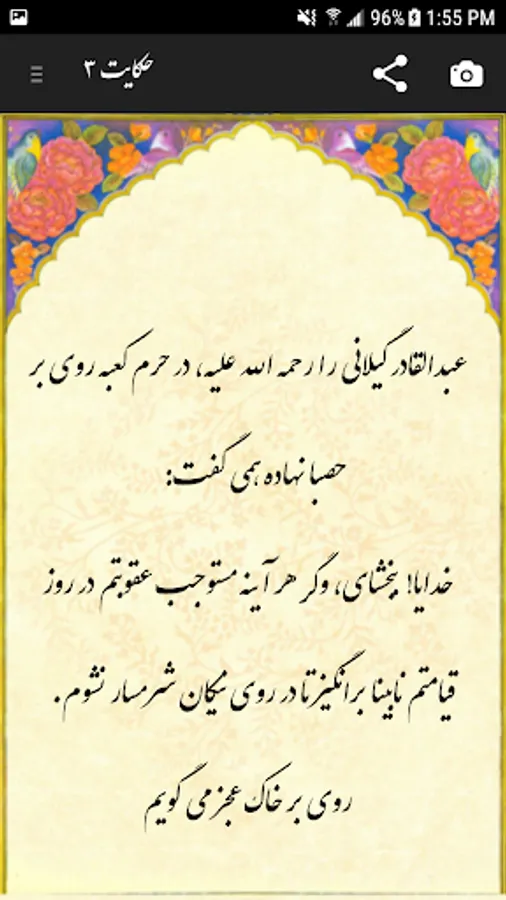 96% 1:55 PM
حکایت ۳
عبدالقادر گیلانی را رحمه الله علیه، در حرم کعبه روی بر
حصبا نهاده همی گفت:
خدایا! ببخشای، وگر هر آینه مستوجب عقوبتم در روز
قیامتم نابینا برانگیز تا در روی نیکان شرمسار نشوم.
روی بر خاک عجز می گویم